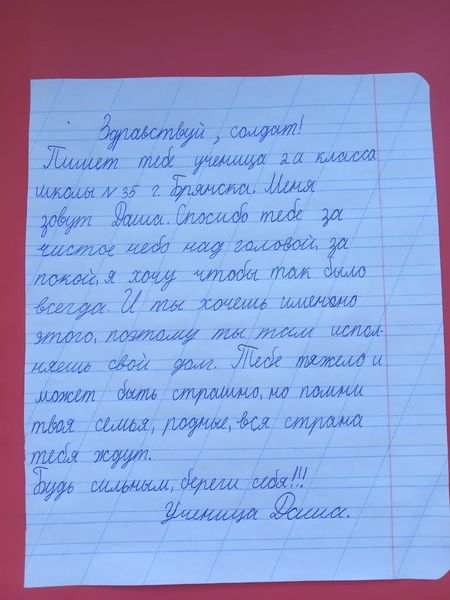 Здравствуй, солдат!
Пишет тебе ученица 2а класса
школы № 35 г. Брянска. Меня
зовут Даша. Спосибо тебе за
чистое небо над головой, за
покой, я хочу чтобы так было
всегда. И ты хочешь именно
этого, поэтому ты там испол-
няешь свой долг. Тебе тяжело и
может быть страшно, но помни
твоя семья, родные, вся страна
тебя ждут.
Будь сильным, береги себя!!!
Ученица Даша.